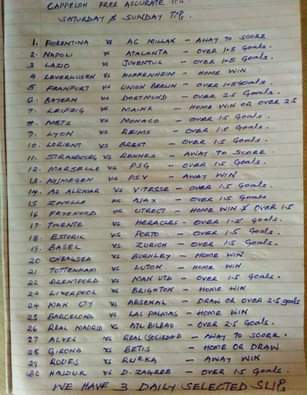 CAPPELOH FREE ACCURATE TIP
SATURDAY & SUNDAY TIP.
1. FIORENTINA VS AC MILLAN - AWAY TO SCORE
2. NAPOLI VS ATALANTA - OVER 1.5 Goals.
3. LAZIO VS JUVENTUS - OVER 1.5 Goals.
4 LEVERKUSEN VS HOFFENHEIM - HOME WIN
5 FRANKFURT VS UNION BERLIN - OVER 1.5 Goals
6. BAYERN VS DORTMUND - OVER 2.5 Goals.
7. LEIPZIG VS MAINZ - HOME WIN OR OVER 2.5
8 METZ VS MONACO - OVER 1.5 Goals.
9 LYON VS REIMS - OVER 1.5 Goals.
10. LORIENT VS BREST - OVER 1.5 Goals.
11. STRASBOURG VS RENNES - AWAY TO SCORE.
12. MARSEILLE VS PSG - OVER 1.5 Goals.
13. NIJMEGEN VS PSV - AWAY WIN
14. AZ ALKMAR VS VITESSE - OVER 1.5 Goals.
15 ZWOLLE VS AJAX - OVER 1.5 Goals.
16 FEYENORD VS UTRECT - HOME WIN & OVER 1.5
17 TWENTE VS HERACLES - OVER 1.5 Goals.
18 ESTORIL VS PORTO - OVER 1.5 Goals.
19 BASEL VS ZURICH - OVER 1.5 Goals.
20 CHELSEA VS BURNLEY - HOME WIN
21 TOTTENHAM VS LUTON - HOME WIN
22 BRENTFORD VS MAN UTD - OVER 1.5 Goals.
23 LIVERPOOL VS BRIGHTON - HOME WIN
24 MAN CITY VS ARSENAL - DRAW OR OVER 2.5 goals
25 BARCELONA VS LAS PALMAS - HOME WIN
26 REAL MADRID VS ATL BILBAO - OVER 2.5 Goals.
27 ALVES VS REAL SOCIEDAD - AWAY TO SCORE.
28 GIRONA VS BETIS - HOME OR DRAW
29 RUDES VS RIJEKA - AWAY WIN
30 HAJDUK VS D. ZAGREB - OVER 1.5 Goals.
WE HAVE 3 DAILY SELECTED SLIPS